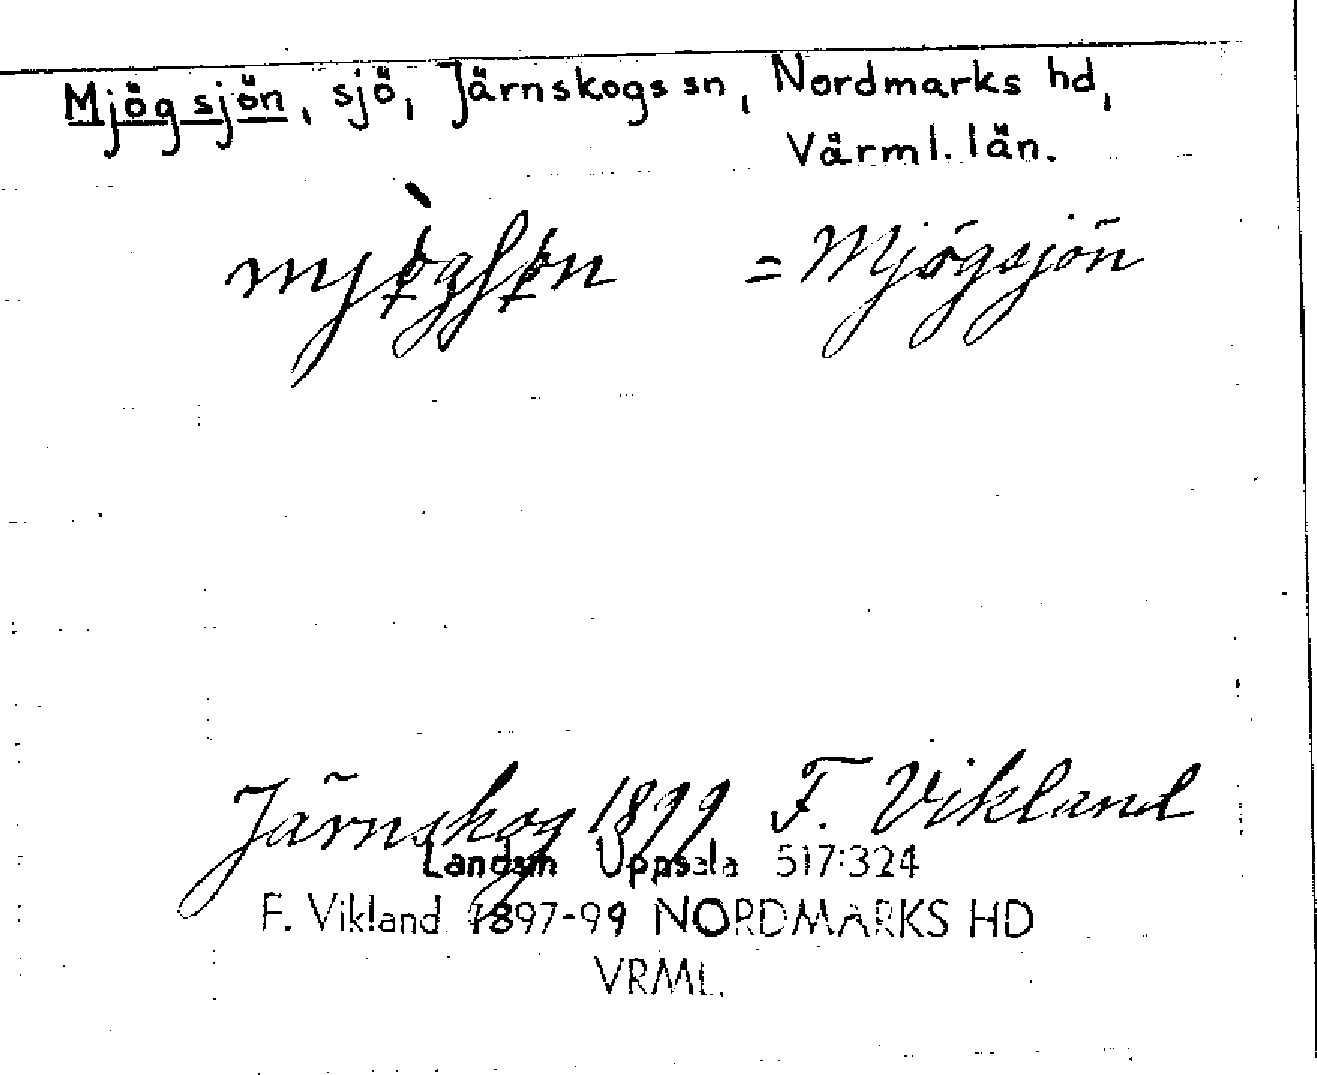 Mjögsjön, sjö, Järnskogs sn, Nordmarks hd,
Värml. län.
= Mjögsjön
Järnskog 1899 F. Vikland
Landsm Uppsala 517:324
F. Vikland 1897-99 NORDMARKS HD
VRML.